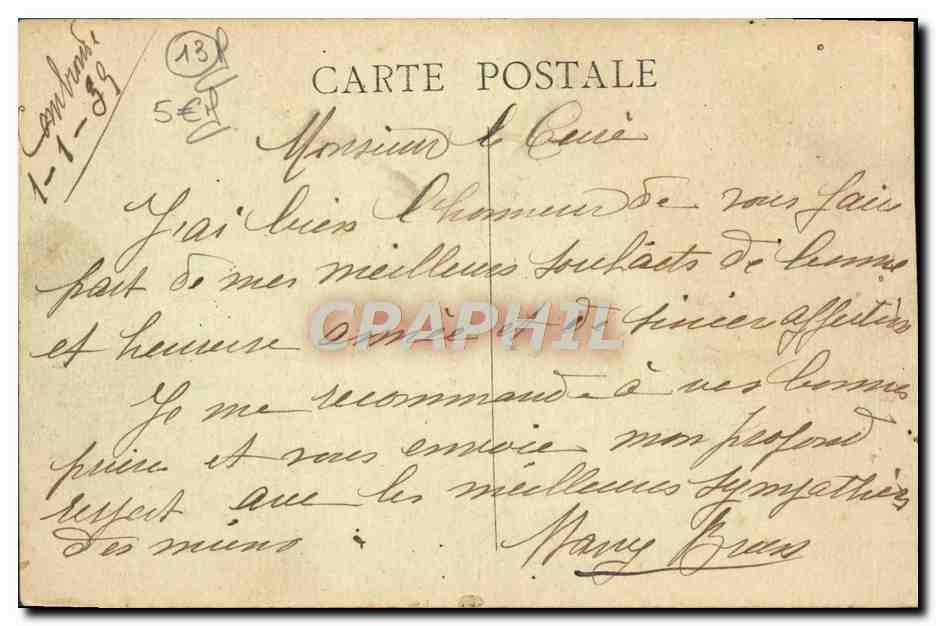 1-1-39
13
5€
CARTE POSTALE
Monsieur le Curé
J'ai bien l'honneur de vous faire
part de mes meilleurs souhaits de bonne
et heureuse année et de sincer affection
CRAPHIL
Je me recommande à vos bonnes
prière et vous envoie mon profond
respect avec les meilleures sympathies
des miens.